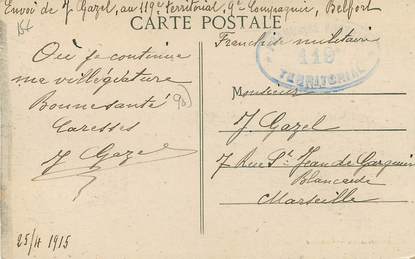 Envoi de J. Gazel, au 119e territorial, 9e Compagnie, Belfort
CARTE POSTALE
Franchise militaire
119e
TERRITORIAL
Où je continue
ma villégiature
Bonne santé
Caresses
J Gazel
25/4 1915
Monsieur
J. Gazel
7 Rue St Jean de
Blancarde
Marseille